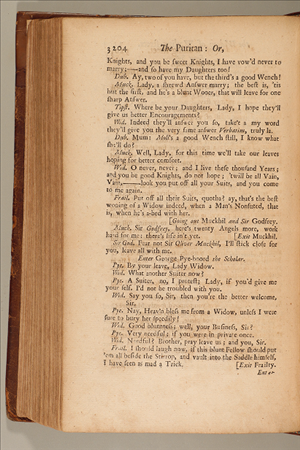 3204 The Puritan: Or,
Knights, and you be sweet Knights, I have vow'd never to
marry;—and so have my Daughters too!
Dub. Ay, two of you have, but the third's a good Wench!
Muck. Lady, a shrewd Answer marry; the best is, 'tis
but the first, and he's a blunt Wooer, that will leave for one
sharp Answer.
Tipst. Where be your Daughters, Lady, I hope they'll
give us better Encouragements?
Wid. Indeed they'll answer you so, take't a my word
they'll give you the very same answer Verbatim, truly la.
Dub. Mum: Moll's a good Wench still, I know what
she'll do!
Muck. Well, Lady, for this time we'll take our leaves
hoping for better comfort.
Wid. O never, never; and I live these thousand Years;
and you be good Knights, do not hope; 'twill be all Vain,
Vain,—look you put off all your Suits, and you come
to me again.
Frail. Put off all their Suits, quotha? ay, that's the best
wooing of a Widow indeed, when a Man's Nonsuted, that
is, when he's a-bed with her.
[Going out Muckhil and Sir Godfrey.
Muck. Sir Godfrey, here's twenty Angels more, work
hard for me; there's life in't yet. [Exit Muckhil.
Sir God. Fear not Sir Oliver Muckhil, I'll stick close for
you, leave all with me.
Enter George Pye-board the Scholar.
Pye. By your leave, Lady Widow.
Wid. What another Suiter now?
Pye. A Suiter, no, I protest; Lady, if you'd give me
your self, I'd not be troubled with you.
Wid. Say you so, Sir, then you're the better welcome,
Sir.
Pye. Nay, Heav'n bless me from a Widow, unless I were
sure to bury her speedily!
Wid. Good bluntness; well, your Business, Sir?
Pye. Very needful; if you were in private once.
Wid. Needful? Brother, pray leave us; and you, Sir.
Frail. I should laugh now, if this blunt Fellow should put
'em all beside the Stirrop, and vault into the Saddle himself,
I have seen as mad a Trick. [Exit Frailty.
Enter